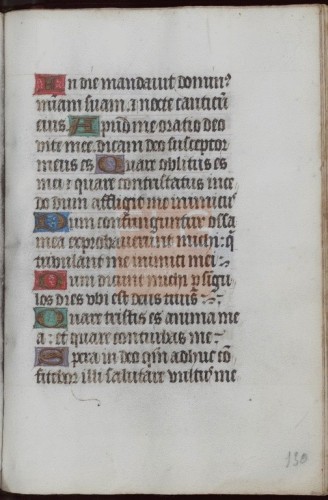 In die mandavit domin⁹
miam suam. ⁊ nocte canticū
eius. Apud me oratio deo
vite mee. dicam deo susceptor
meus es Quare oblitus es
mei ⁊ quare contristatus ince
do dum affligit me inimicus
Dum confringuntur ossa
mea exprobauerunt michi: q̄
tribulant me inimici mei :~
Dum dicunt michi p̲ singu
los dies vbi est deus tuus :~
Quare tristis es anima me
a : et quare conturbas me :
Spera in deo qm̄ adhuc cō
fitebor illi salutare vultus me
130